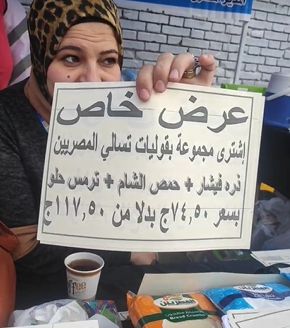 عرض خاص
إشترى مجموعة بقوليات تسالي المصريين
ذره فيشار + حمص الشام + ترمس حلو
بسعر ٧٤,٥٠ج بدلا من ١١٧,٥٠ج
المصريين
Bread Crumbs